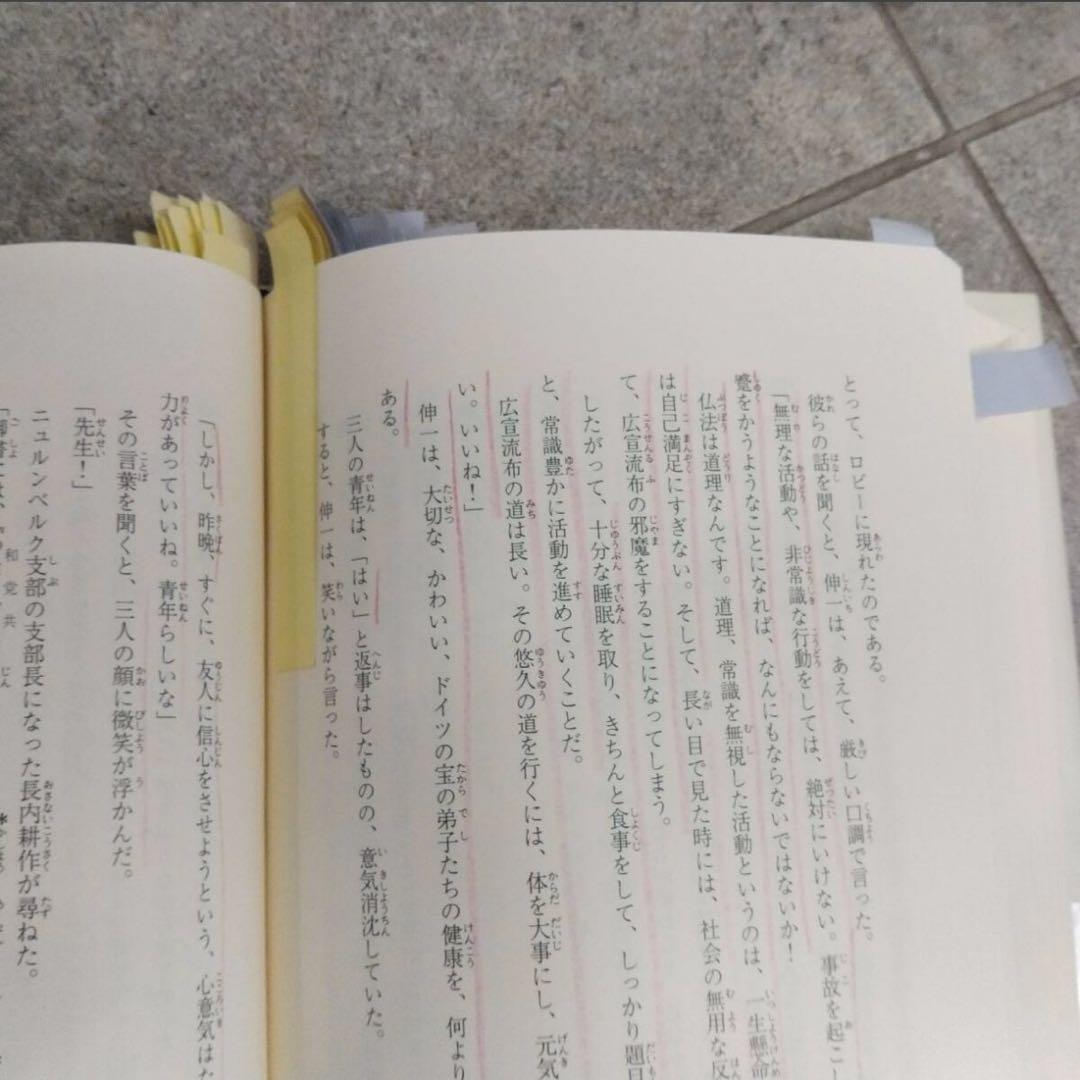 とって、ロビーに現れたのである。
彼らの話を聞くと、伸一は、あえて、厳しい口調で言った。
「無理な活動や、非常識な行動をしては、絶対にいけない。事故を起こし
蹙をかうようなことになれば、なんにもならないではないか！
仏法は道理なんです。道理、常識を無視した活動というのは、一生懸命
は自己満足にすぎない。そして、長い目で見た時には、社会の無用な反
て、広宣流布の邪魔をすることになってしまう。
したがって、十分な睡眠を取り、きちんと食事をして、しっかり題目
と、常識豊かに活動を進めていくことだ。
広宣流布の道は長い。その悠久の道を行くには、体を大事にし、元気
い。いいね！」
伸一は、大切な、かわいい、ドイツの宝の弟子たちの健康を、何より
ある。
三人の青年は、「はい」と返事はしたものの、意気消沈していた。
すると、伸一は、笑いながら言った。
「しかし、昨晩、すぐに、友人に信心をさせようという、心意気はた
力があっていいね。青年らしいな」
その言葉を聞くと、三人の顔に微笑が浮かんだ。
「先生！」
ニュルンベルク支部の支部長になった長内耕作が尋ねた。